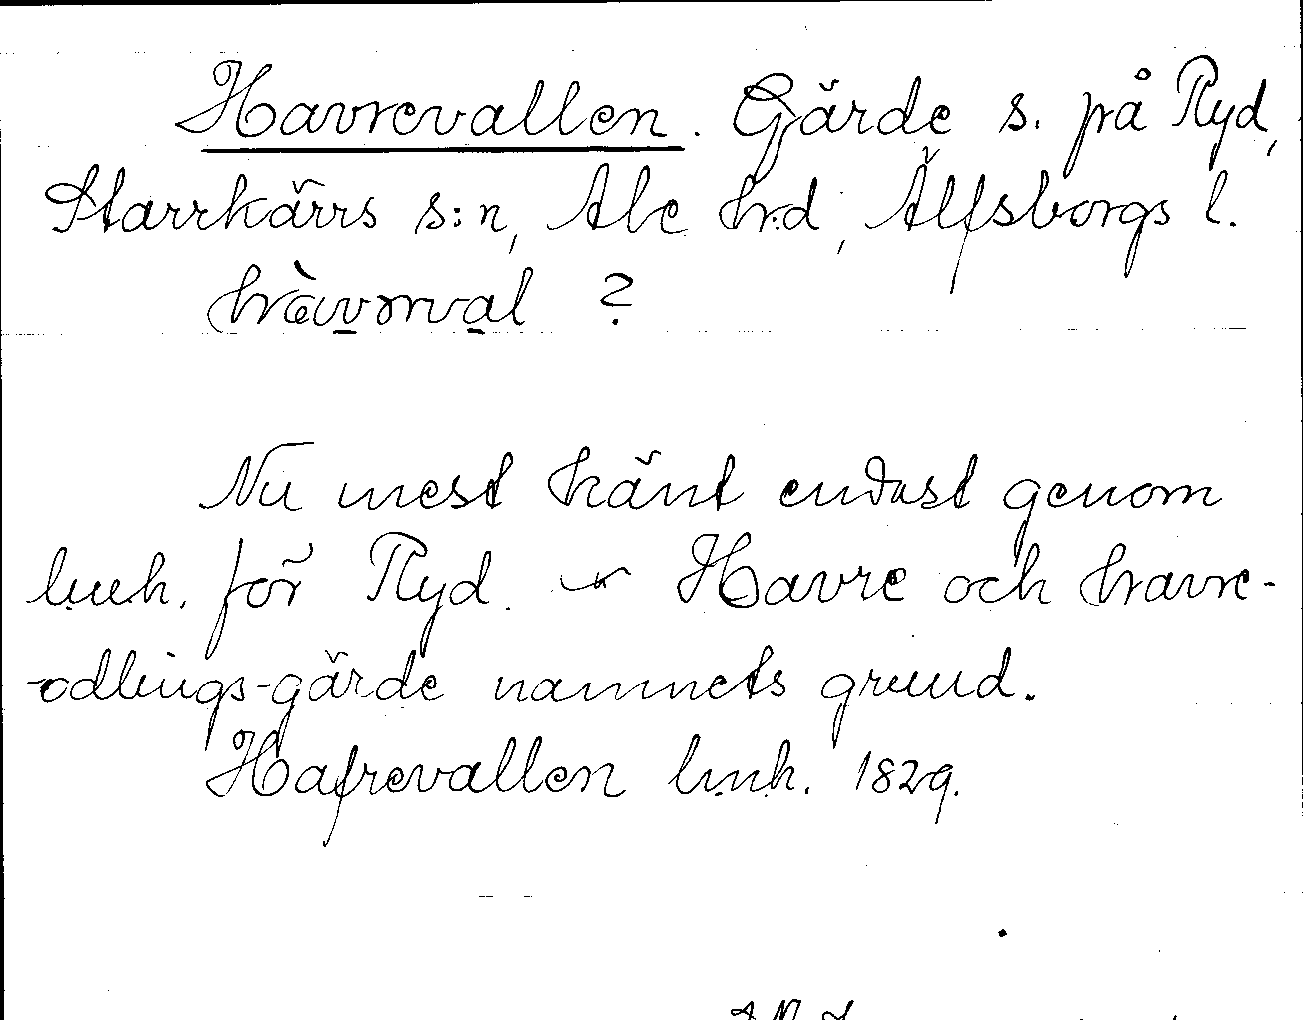 Havrevallen. Gärde s. på Ryd,
Starrkärrs s:n, Ale h:d, Älfsborgs l.
hàvərval ?
Nu mest känt endast genom
lmh. för Ryd. Havre och havre-
odlings-gärde namnets grund.
Hafrevallen lmh. 1829.